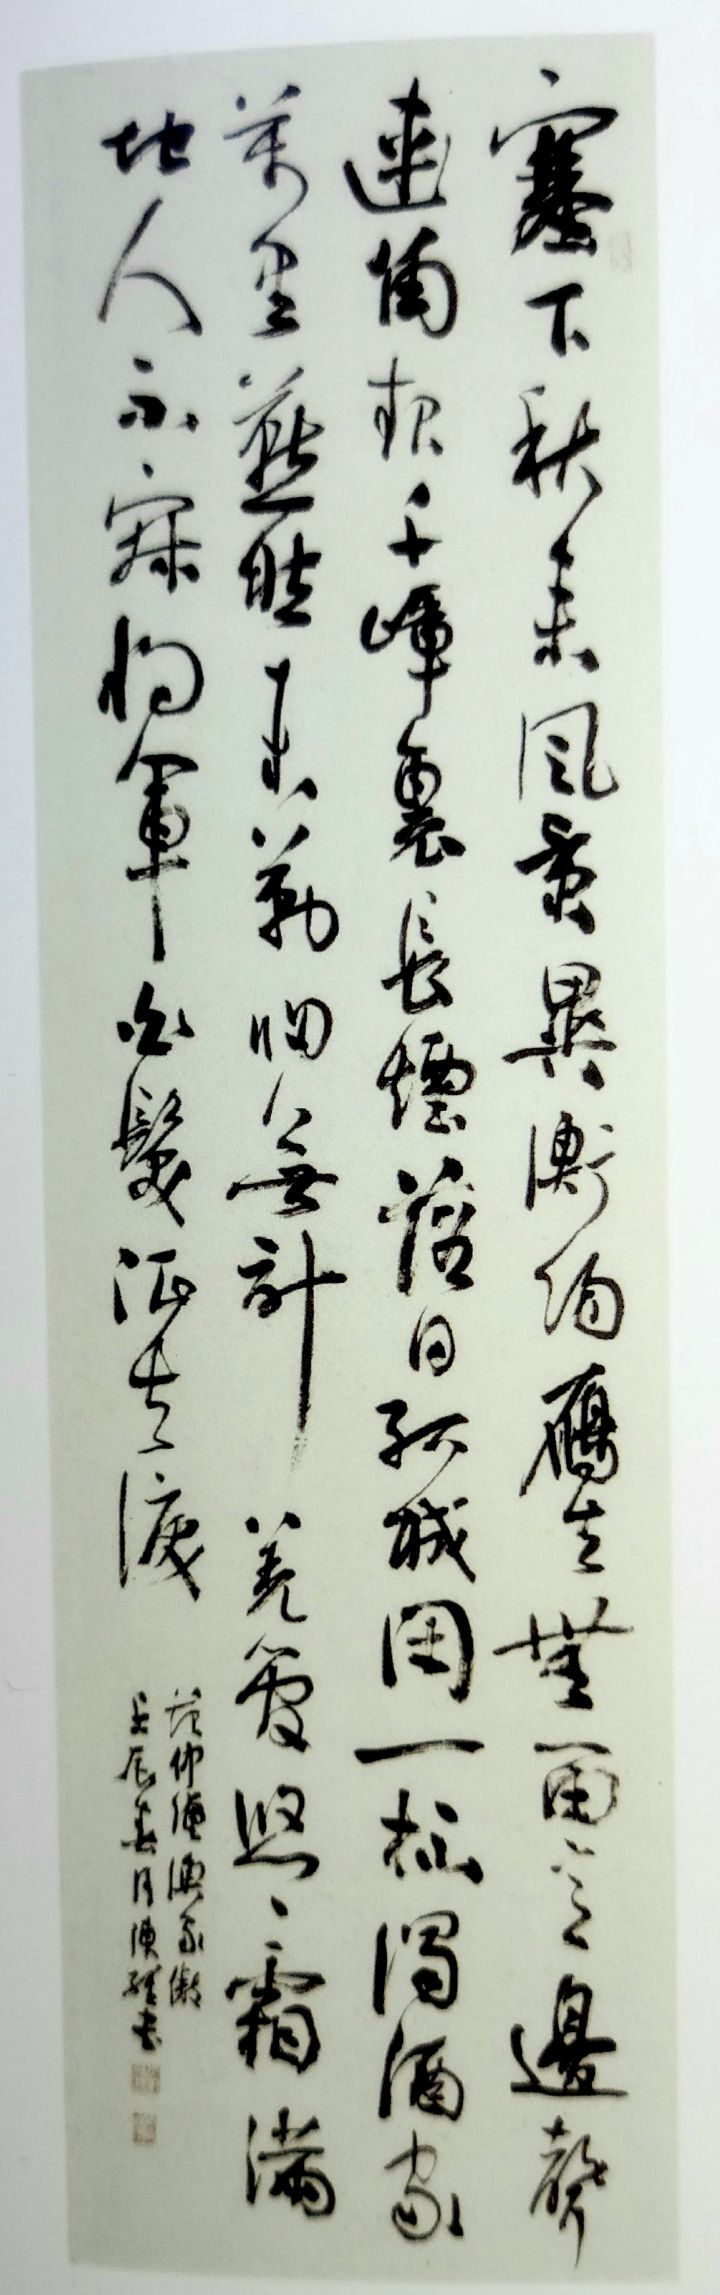 塞下秋来風景異衡陽雁去無留意四面邊聲
連角起千嶂裏長煙落日孤城閉一杯濁酒家
萬里燕然未勒歸無計羌管悠悠霜滿
地人不寐將軍白髮征夫淚
范仲淹漁家傲
壬辰春月